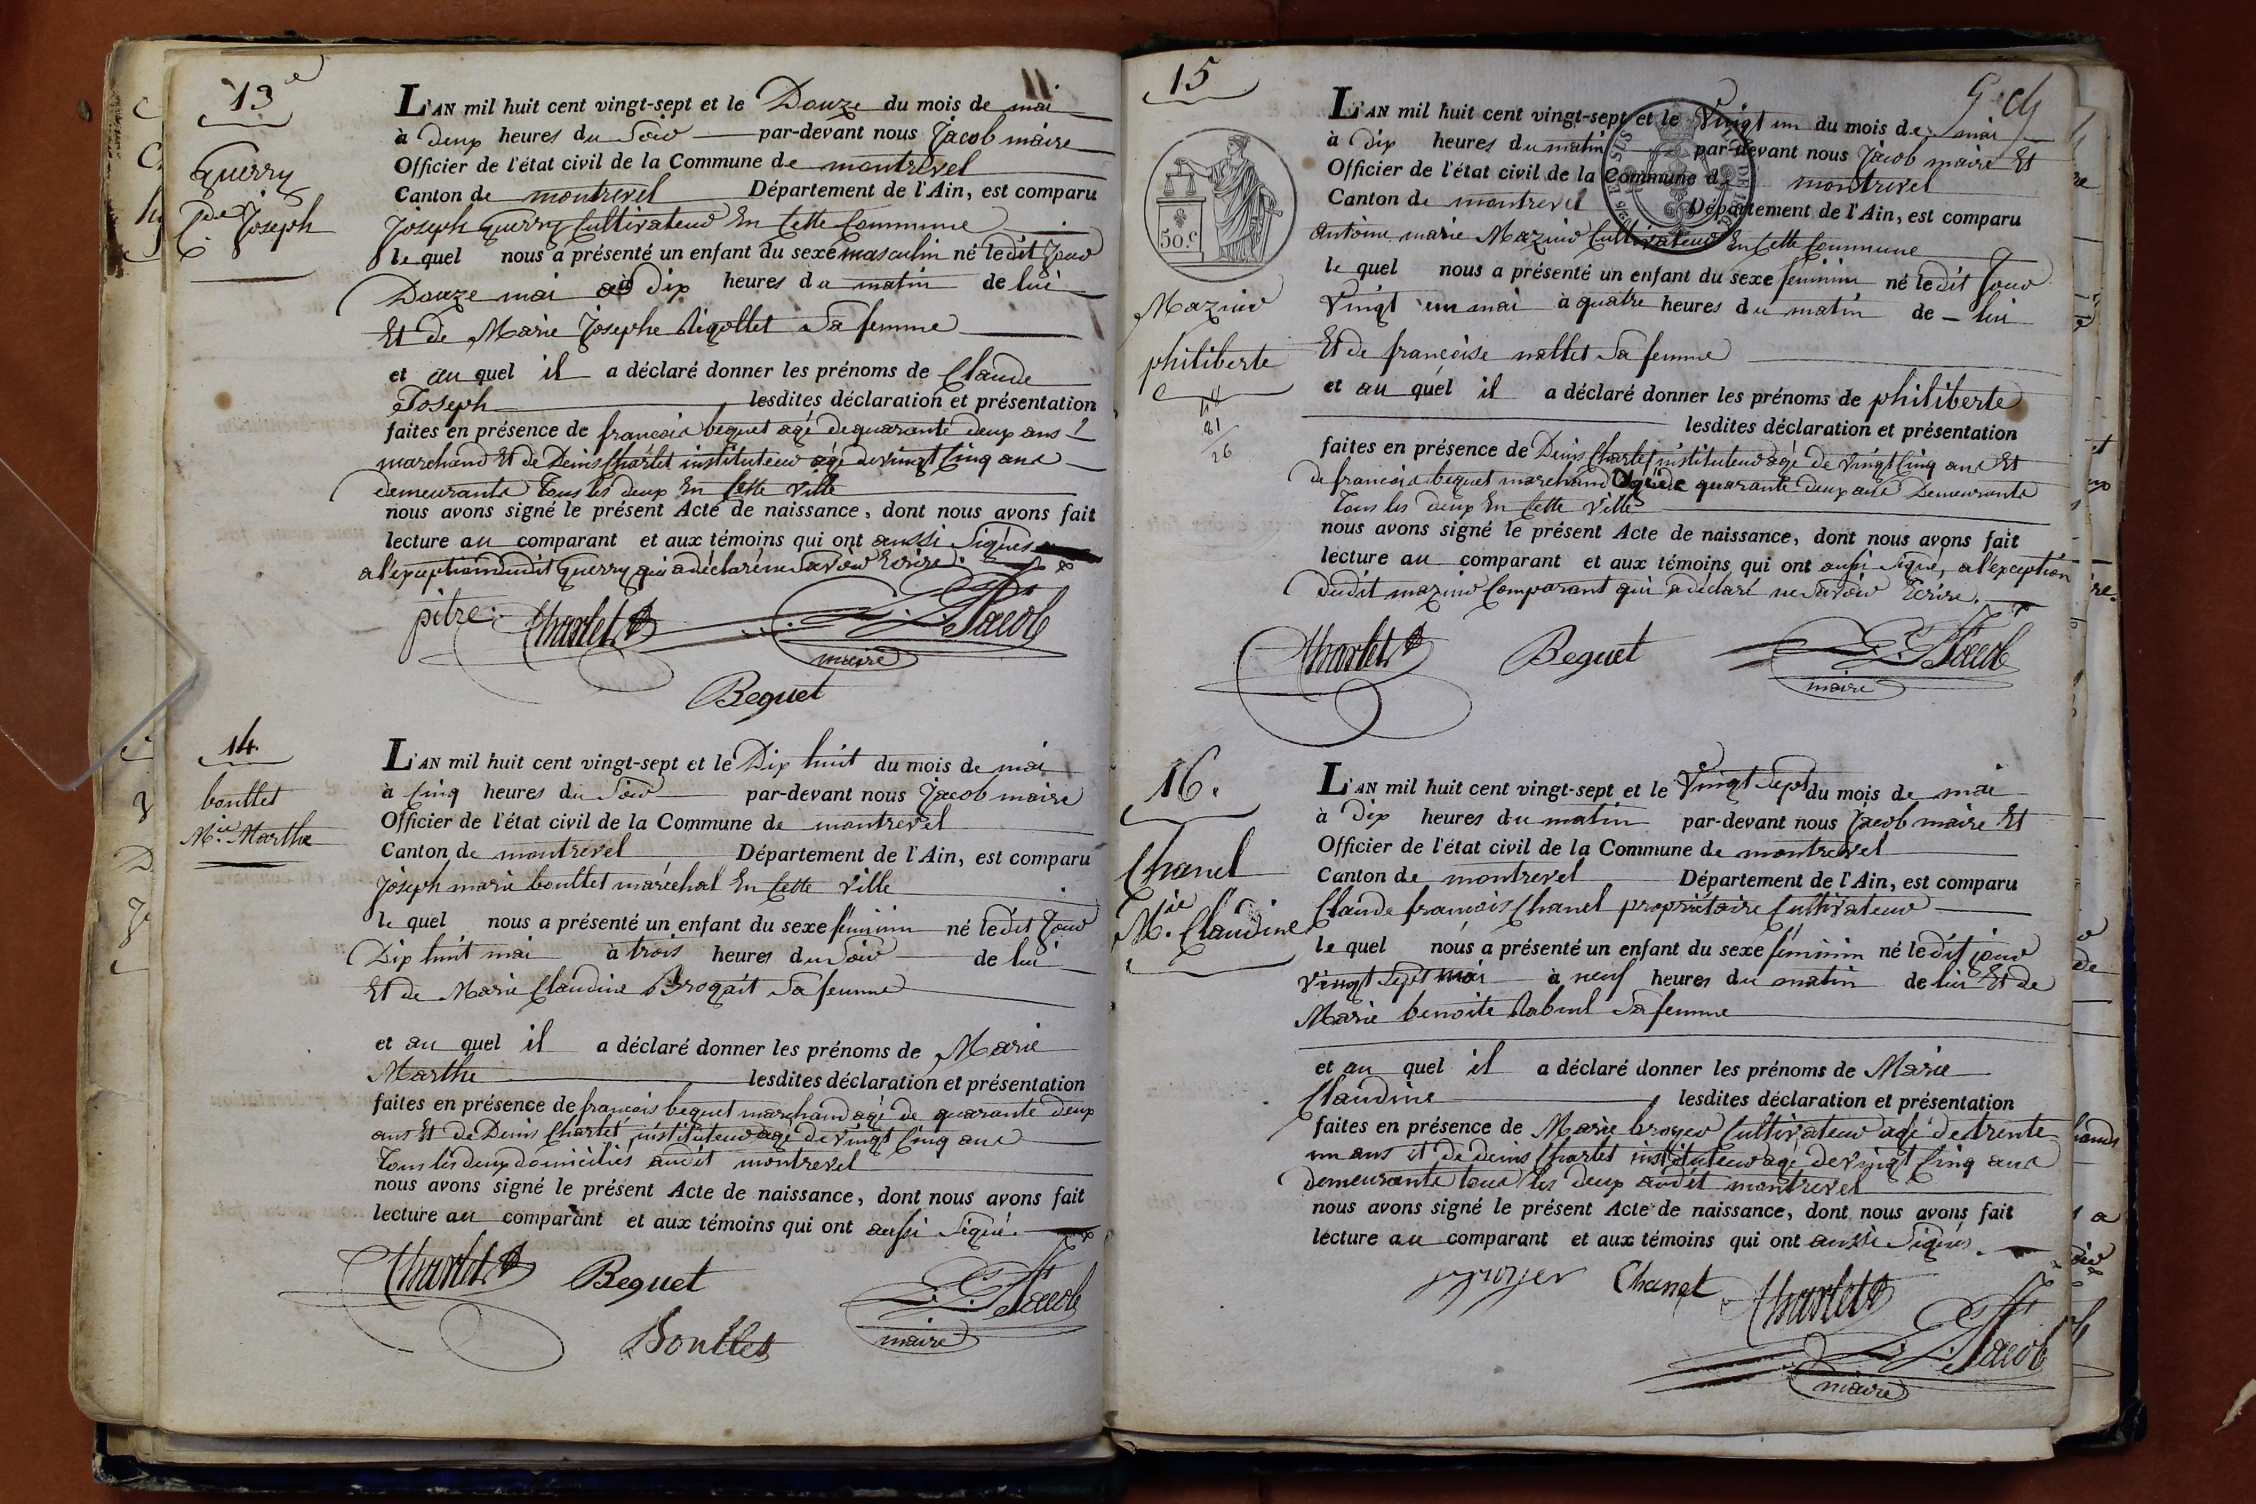 13e
Guerry
Cde Joseph
L'AN mil huit cent vingt-sept et le Douze du mois de mai
à deux heures du Soir par-devant nous Jacob maire
Officier de l'état civil de la Commune de montrevel
Canton de montrevel Département de l'Ain, est comparu
Joseph Guerry Cultivateur En Cette Commune
le quel nous a présenté un enfant du sexe masculin né le dit Jour
Douze mai à dix heures du matin de lui
Et de Marie Josephe Rigollet Sa femme
et au quel il a déclaré donner les prénoms de Claude
Joseph lesdites déclaration et présentation
faites en présence de françois bequet agé de quarante deux ans
marchand Et de Denis Charlet instituteur agé de vingt Cinq ans
demeurants Tous les deux En Cette Ville
nous avons signé le présent Acte de naissance, dont nous avons fait
lecture au comparant et aux témoins qui ont aussi Signés
a l'exception dudit Guerry qui a déclaré ne Savoir Ecrire.
pitre. Charlet Jacob
maire
Bequet
14.
boullet
Mie Marthe
L'AN mil huit cent vingt-sept et le Dix huit du mois de mai
à Cinq heures du Soir par-devant nous Jacob maire
Officier de l'état civil de la Commune de montrevel
Canton de montrevel Département de l'Ain, est comparu
Joseph marie boullet maréchal En Cette Ville
le quel nous a présenté un enfant du sexe féminin né le dit Jour
Dix huit mai à trois heures du Soir de lui
Et de Marie Claudine Brogait Sa femme
et au quel il a déclaré donner les prénoms de Marie
Marthe lesdites déclaration et présentation
faites en présence de françois bequet marchand agé de quarante deux
ans Et de Denis Charlet instituteur agé de vingt Cinq ans
Tous les deux domiciliés audit montrevel
nous avons signé le présent Acte de naissance, dont nous avons fait
lecture au comparant et aux témoins qui ont aussi Signé.
Charlet Bequet Jacob
maire
Boullet
15
50.c
Mazuir
philiberte
L'AN mil huit cent vingt-sept et le Vingt un du mois de mai
à Dix heures du matin par-devant nous Jacob maire Et
Officier de l'état civil de la Commune de montrevel
Canton de montrevel Département de l'Ain, est comparu
Antoine marie Mazuir Cultivateur En Cette Commune
le quel nous a présenté un enfant du sexe féminin né le dit Jour
Vingt un mai à quatre heures du matin de lui
Et de françoise nallet Sa femme
et au quel il a déclaré donner les prénoms de philiberte
lesdites déclaration et présentation
faites en présence de Denis Charlet instituteur agé de vingt Cinq ans Et
de françois bequet marchand agé de quarante deux ans Demeurants
Tous les deux En Cette Ville
nous avons signé le présent Acte de naissance, dont nous avons fait
lecture au comparant et aux témoins qui ont aussi Signé, a l'exception
dudit mazuir Comparant qui a déclaré ne Savoir Ecrire.
Charlet Bequet Jacob
maire
16.
Chanel
Mie Claudine
L'AN mil huit cent vingt-sept et le Vingt Sept du mois de mai
à Dix heures du matin par-devant nous Jacob maire Et
Officier de l'état civil de la Commune de montrevel
Canton de montrevel Département de l'Ain, est comparu
Claude françois Chanel propriétaire Cultivateur
le quel nous a présenté un enfant du sexe féminin né le dit jour
vingt Sept mai à neuf heures du matin de lui Et de
Marie benoite Rabuel Sa femme
et au quel il a déclaré donner les prénoms de Marie
Claudine lesdites déclaration et présentation
faites en présence de Marie broyer Cultivateur agé de trente
un ans et de denis Charlet instituteur agé de vingt Cinq ans
demeurants tous les deux audit montrevel
nous avons signé le présent Acte de naissance, dont nous avons fait
lecture au comparant et aux témoins qui ont aussi Signés.
Chanel Charlet
Jacob
maire